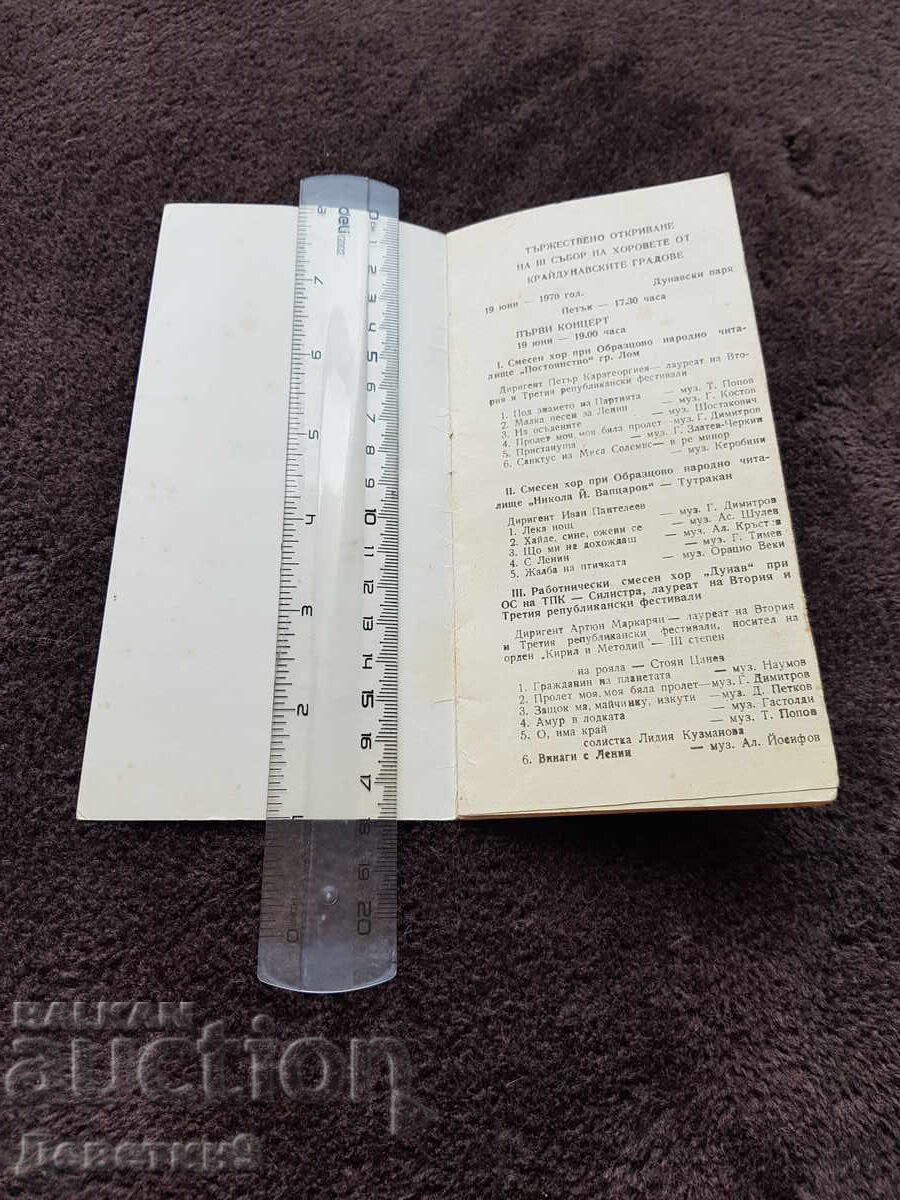 ТЪРЖЕСТВЕНО ОТКРИВАНЕ
НА III СЪБОР НА ХОРОВЕТЕ ОТ
КРАЙДУНАВСКИТЕ ГРАДОВЕ
19 юни — 1970 год. Дунавски парк
Петък — 17.30 часа
ПЪРВИ КОНЦЕРТ
19 юни — 19.00 часа
I. Смесен хор при Образцово народно чита-
лище „Постоянство" гр. Лом
Диригент Петър Карагеоргиев — лауреат на Вто-
рия и Третия републикански фестивали
1. Под знамето на Партията — муз. Т. Попов
2. Малка песен за Ленин — муз. Г. Костов
3. На осъдените — муз. Шостакович
4. Пролет моя, моя бяла пролет — муз. Г. Димитров
5. Пристануша — муз. Г. Златев-Черкин
6. Санктус из Миса Солемис — в ре минор
— муз. Керобини
II. Смесен хор при Образцово народно чита-
лище „Никола Й. Вапцаров" — Тутракан
Диригент Иван Пантелеев
1. Лека нощ — муз. Г. Димитров
2. Хайде, сине, ожени се — муз. Ас. Шулев
3. Що ми не дохождаш — муз. Ал. Кръстев
4. С Ленин — муз. Г. Тимев
5. Жалба на птичката — муз. Орацио Веки
III. Работнически смесен хор „Дунав" при
ОС на ТПК — Силистра, лауреат на Втория и
Третия републикански фестивали
Диригент Артюн Маркарян — лауреат на Втория
и Третия републикански фестивали, носител на
орден „Кирил и Методий" — III степен
на рояла — Стоян Цанев
1. Гражданин на планетата — муз. Наумов
2. Пролет моя, моя бяла пролет — муз. Г. Димитров
3. Защок ма, майчинку, изкути — муз. Д. Петков
4. Амур в лодката — муз. Гастолди
5. О, има край — муз. Т. Попов
солистка Лидия Кузманова
6. Винаги с Ленин — муз. Ал. Йосифов
deli
0 1 2 3 4 5 6 7 8 9 10 11 12 13 14 15 16 17 18 19 20
8 7 6 5 4 3 2 1 0
BALKAN
auction
Деветкиѝ